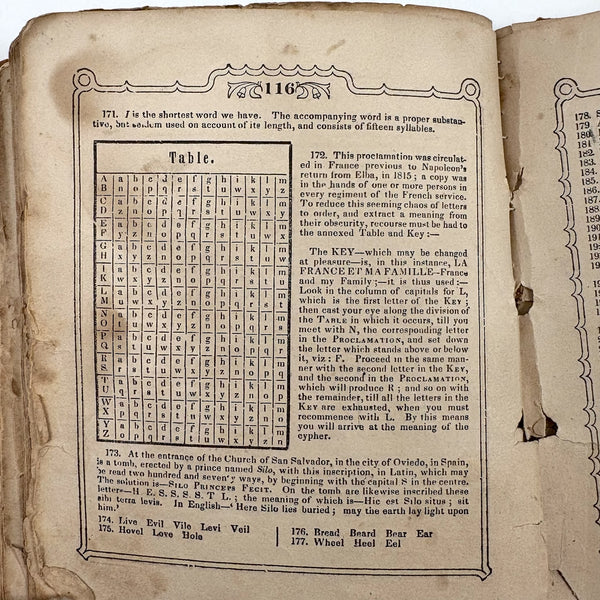 116
171. I is the shortest word we have. The accompanying word is a proper substan-
tive, but seldom used on account of its length, and consists of fifteen syllables.
Table.
A a b c d e f g h i k l m
B n o p q r s t u w x y z
C a b c d e f g h i k l m
D z n o p q r s t u w x y
E a b c d e f g h i k l m
F y z n o p q r s t u w x
G a b c d e f g h i k l m
H x y z n o p q r s t u w
I a b c d e f g h i k l m
K w x y z n o p q r s t u
L a b c d e f g h i k l m
M u w x y z n o p q r s t
N a b c d e f g h i k l m
O t u w x y z n o p q r s
P a b c d e f g h i k l m
Q s t u w x y z n o p q r
R a b c d e f g h i k l m
S r s t u w x y z n o p q
T a b c d e f g h i k l m
U q r s t u w x y z n o p
W a b c d e f g h i k l m
X p q r s t u w x y z n o
Y a b c d e f g h i k l m
Z o p q r s t u w x y z n
172. This proclamation was circulat-
ed in France previous to Napoleon's
return from Elba, in 1815; a copy was
in the hands of one or more persons in
every regiment of the French service.
To reduce this seeming chaos of letters
to order, and extract a meaning from
their obscurity, recourse must be had to
the annexed Table and Key:—
The KEY—which may be changed
at pleasure—is, in this instance, LA
FRANCE ET MA FAMILLE—France
and my Family;—it is thus used:—
Look in the column of capitals for L,
which is the first letter of the KEY;
then cast your eye along the division of
the TABLE in which it occurs, till you
meet with N, the corresponding letter
in the PROCLAMATION, and set down
the letter which stands above or below
it, viz: F. Proceed in the same man-
ner with the second letter in the KEY,
and the second in the PROCLAMATION,
which will produce R; and so on with
the remainder, till all the letters in the
KEY are exhausted, when you must
recommence with L. By this means
you will arrive at the meaning of the
cypher.
173. At the entrance of the Church of San Salvador, in the city of Oviedo, in Spain,
is a tomb, erected by a prince named Silo, with this inscription, in Latin, which may
be read two hundred and seventy ways, by beginning with the capital S in the centre.
The solution is—SILO PRINCEPS FECIT. On the tomb are likewise inscribed these
letters—H E S S S S T L.; the meaning of which is—Hic est Silo situs; sit
sibi terra levis. In English—' Here Silo lies buried; may the earth lay light upon
him.'
174. Live Evil Vile Levi Veil
175. Hovel Love Hole
176. Bread Beard Bear Ear
177. Wheel Heel Eel
178. S
179
180.
181
182.
183.